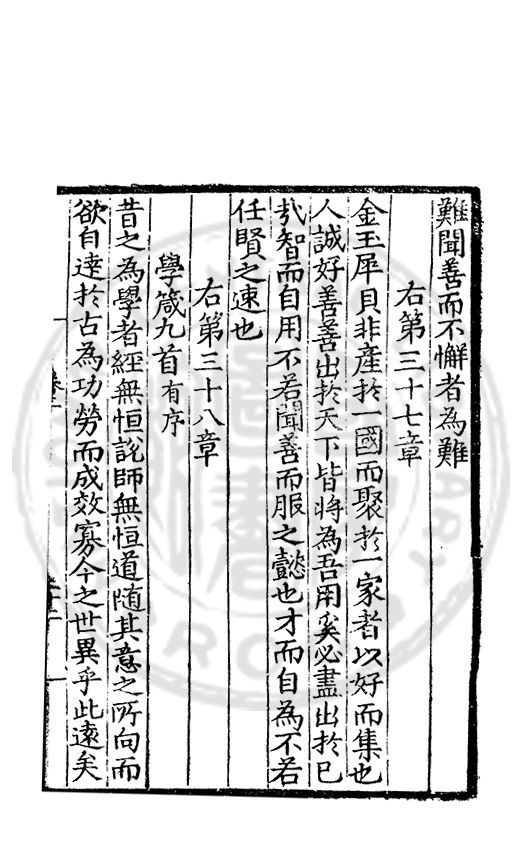 難聞善而不懈者為難
右第三十七章
金玉犀貝非產於一國而聚於一家者以好而集也
人誠好善善出於天下皆將為吾用奚必盡出於已
哉智而自用不若聞善而服之懿也才而自為不若
任賢之速也
右第三十八章
學箴九首有序
昔之為學者經無恒說師無恒道随其意之所向而
欲自達於古為功勞而成效寡今之世異乎此遠矣